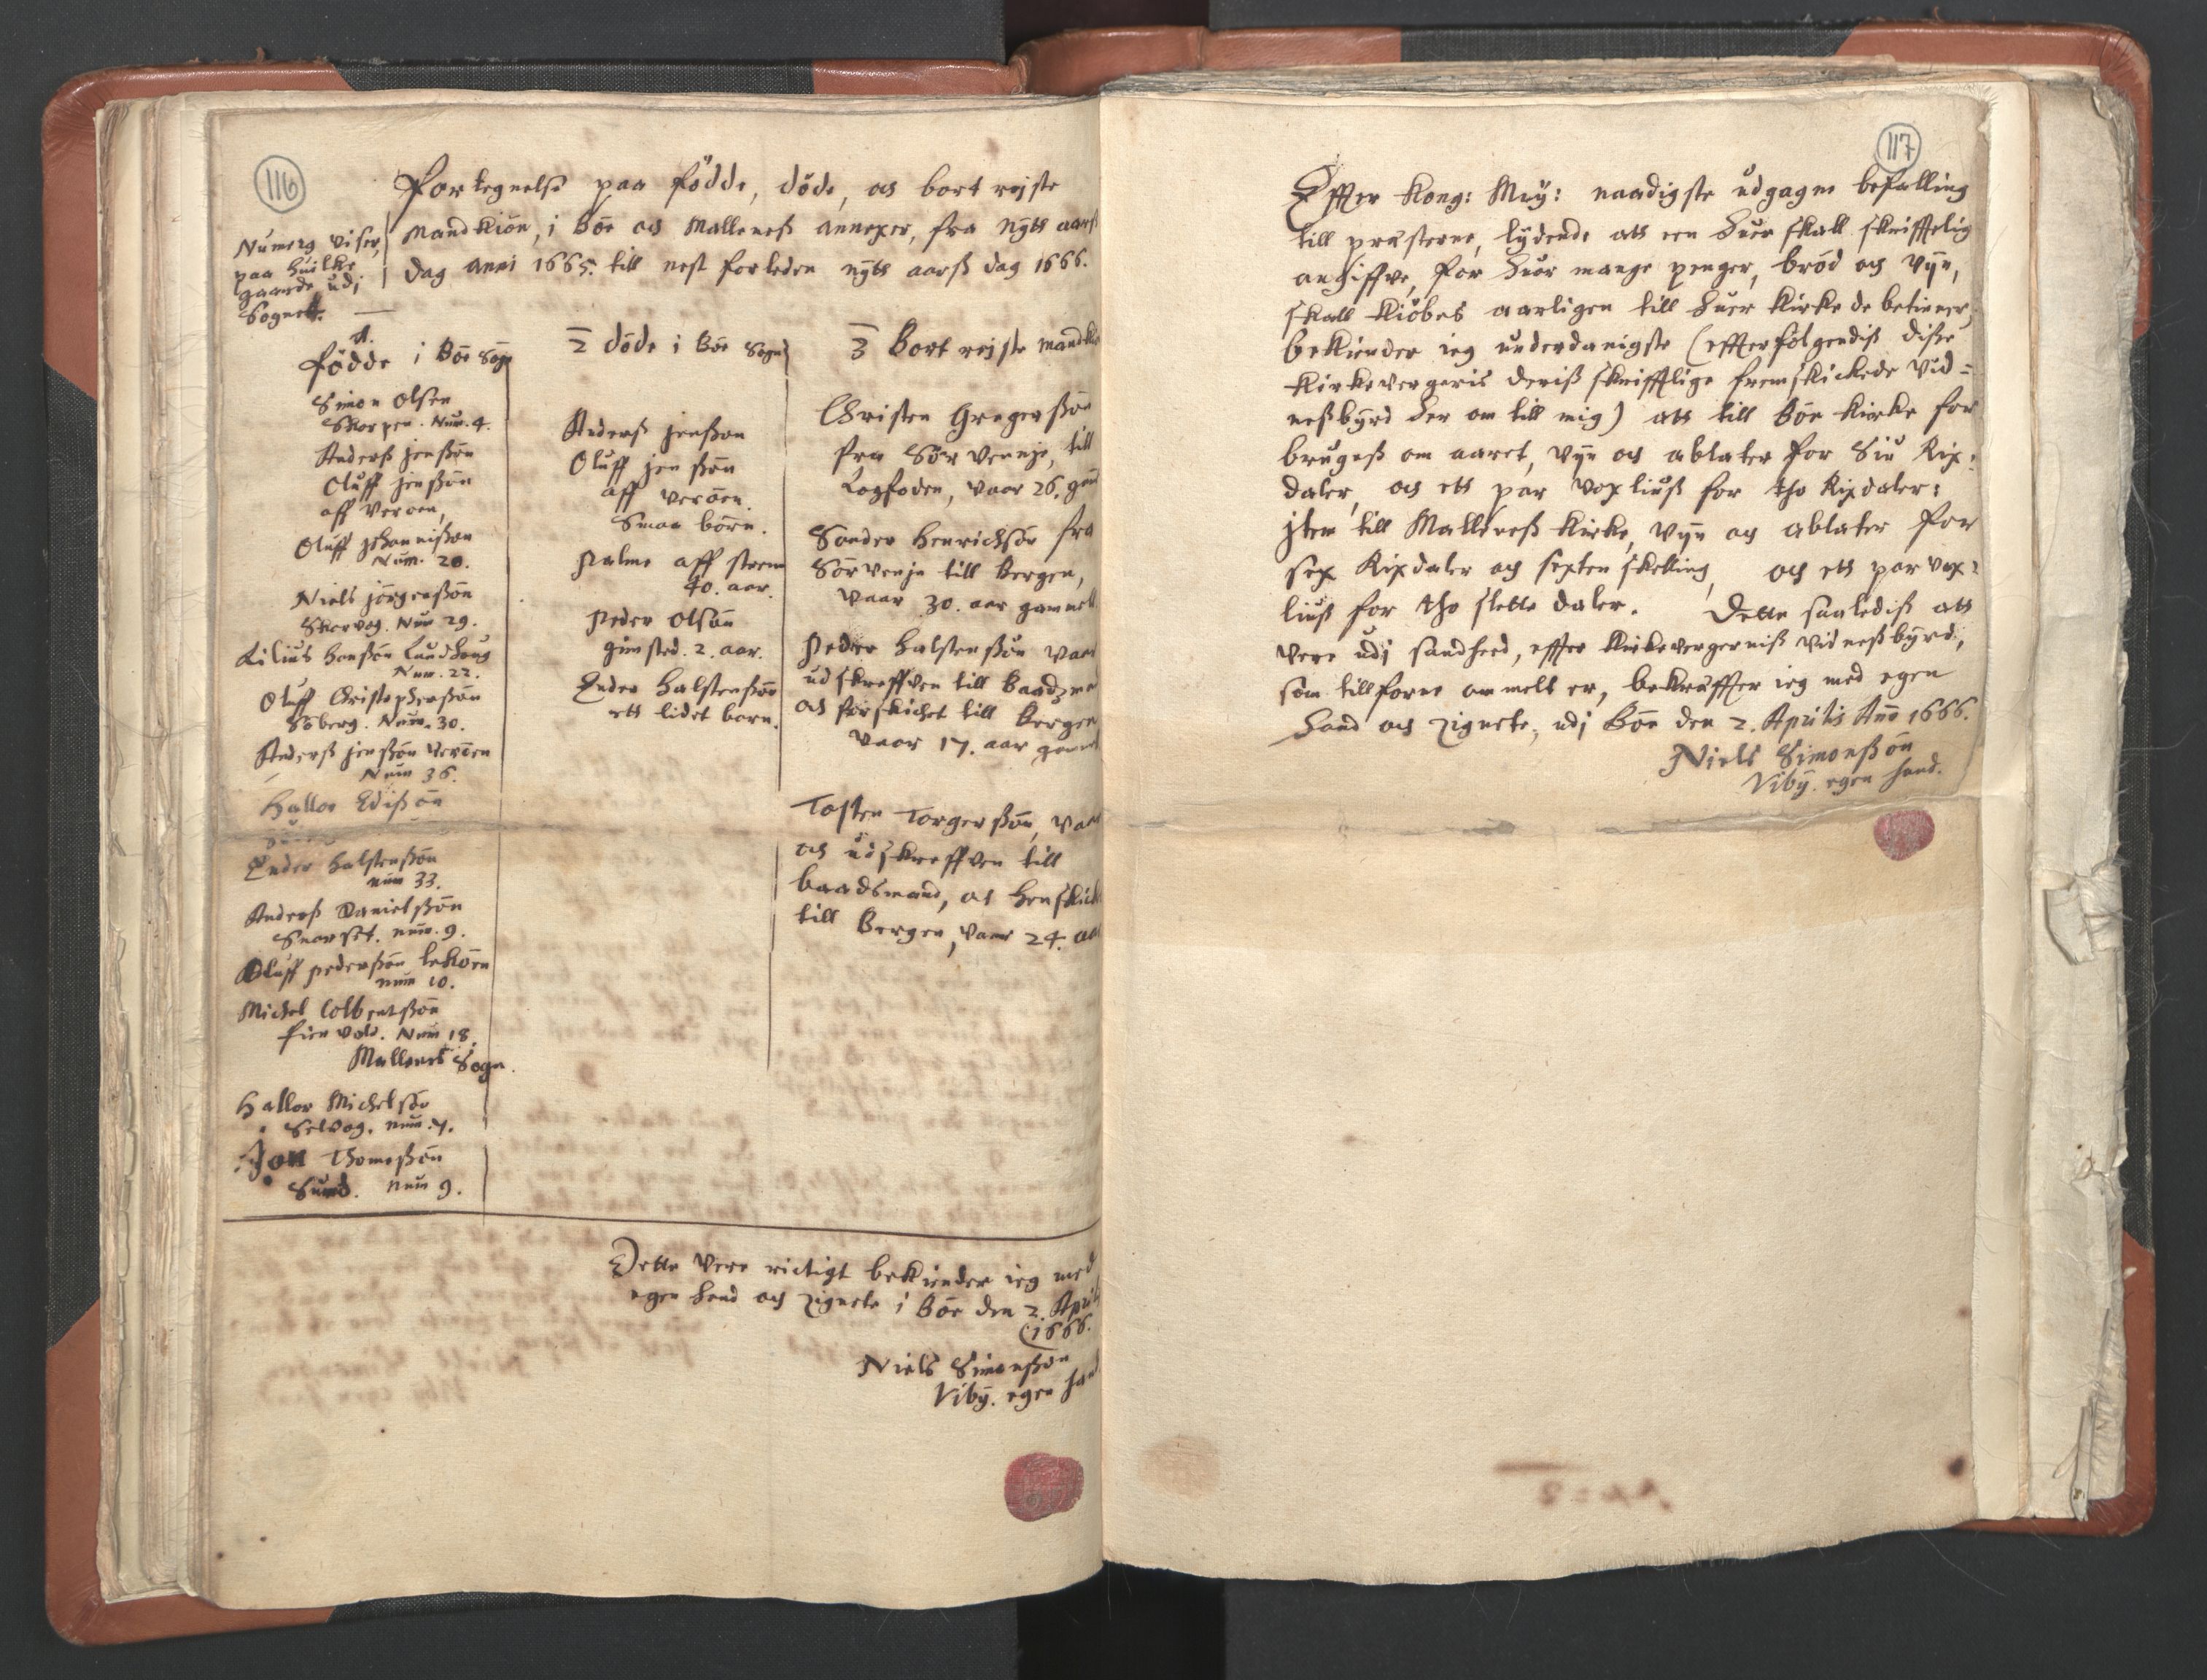 116
Fortegnelse paa födde, döde, och bort rejste
Mandkiön, i Böe och Mallenes annexer, fra Nytt aars
dag anni 1665. till nest forleden nytt aarß dag 1666.
Numerus viser
paa huilke
gaarde udj
Sognet.
1.
födde i Böe Sogn
Simon Olsen
Skorpen. Num. 4.
Anderß Jenßön
Oluff Jenßön
aff Veröen,
Oluff Johannißön
Num. 20.
Niels Jörgenßön
Skarvog. Num 29.
Kilius Hanßön Lundhoug
Num. 22.
Oluff Christopherßön
Söberg. Num. 30.
Anderß Jenßön Veröen
Num 36.
Hallor Edißön
Ender Halstenßön
num 33.
Anderß Danielßön
Snorset. num. 9.
Oluff Pederßön Leköen
num 10.
Michel Colbentßön
fienvold. Num 18.
Mallenes Sogn.
Hallor Michelsön
Selvog. num. 7.
Jon Thomeßön
Sund. num 9.
2 döde i Böe Sogn
Anderß Jenßön
Oluff Jenßön
aff Veröen.
Smaa börn.
Palme aff Steene
40. aar.
Peder Olsön
Gimsted. 2. aar.
Ender Halstenßön
ett lidet barn.
3 Bort rejste mandkiö
Christen Gregerßön
fra Sör Venje, till
Logfoden, vaar 26. gam
Sander Henrichsön fra
Sörvenje till Bergen,
vaar 30. aar gammell
Peder Halstenßön vaar
udskreffven till baadzma
och forskichet till Bergen
vaar 17. aar gammel
Tosten Torgerßön, vaar
och udskreffven till
baadsmand, oc henskich
till Bergen, vaar 24. aar
Dette vere rictigt bekiender ieg med
egen Hand och zignete i Böe den 2. April
1666.
Niels Simonßön
Viby. egen hand
117
Effter Kong: May: naadigste udgagne befalling
till præsterne, lydende att een huer skall skrifftelig
angiffve, for huor mange penger, bröd och vijn,
skall kiöbes aarligen till huer kirke de betiener,
bekiender ieg underdanigste (effterfölgendiß disse
kirkevergeris deriß skrifftlige fremskickede vid=
neßbyrd her om till mig) att till Böe kirke for
brugeß om aaret, vijn och ablater for Siu Rix:
daler, och ett par voxliuß for tho Rixdaler:
jtem till Malleneß kirke, vijn og ablater for
sex Rixdaler och sexten skelling, och ett par vox:
liuß for tho slette daler. Dette saalediß att
vere udj sandhed, effter kirkevergerniß vidneßbyrd,
som tillforne ommelt er, bekreffter ieg med egen
Hand och zignete, udj Böe den 2. Aprilis Anno 1666.
Niels Simonßön
Viby. egen hand.